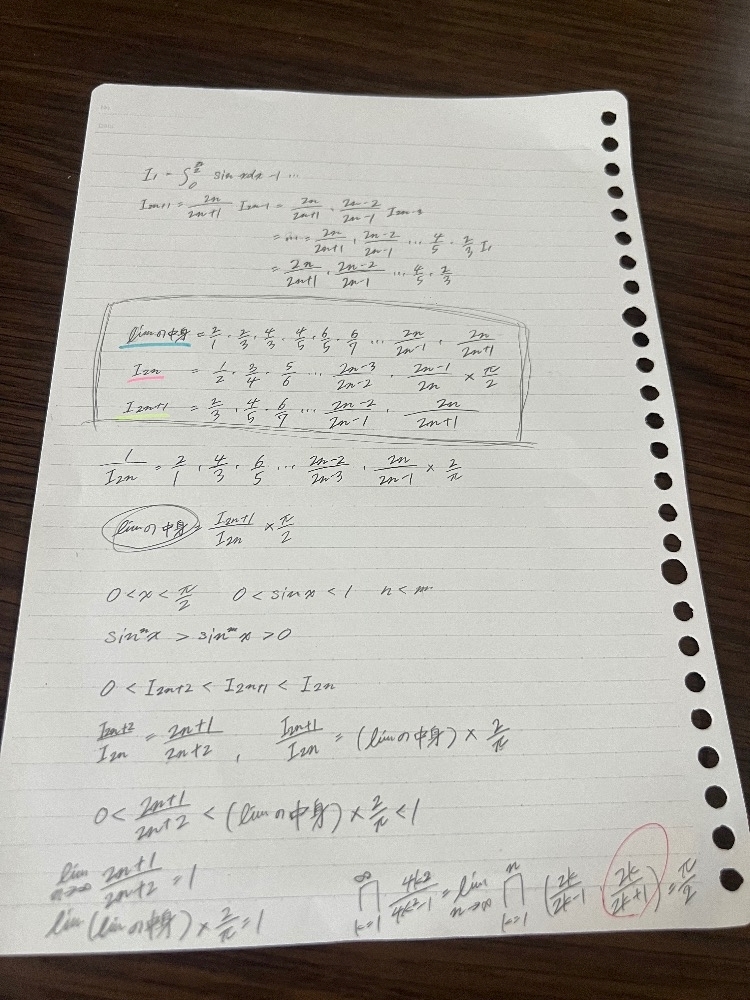 I₁ = ∫₀^(π/2) sin x dx = 1 …
I₂ₙ₊₁ = 2n/(2n+1) I₂ₙ₋₁ = 2n/(2n+1) · (2n-2)/(2n-1) I₂ₙ₋₃
= … = 2n/(2n+1) · (2n-2)/(2n-1) … 4/5 · 2/3 I₁
= 2n/(2n+1) · (2n-2)/(2n-1) … 4/5 · 2/3
limの中身 = 2/1 · 2/3 · 4/3 · 4/5 · 6/5 · 6/7 … 2n/(2n-1) · 2n/(2n+1)
I₂ₙ = 1/2 · 3/4 · 5/6 … (2n-3)/(2n-2) · (2n-1)/2n × π/2
I₂ₙ₊₁ = 2/3 · 4/5 · 6/7 … (2n-2)/(2n-1) · 2n/(2n+1)
1/I₂ₙ = 2/1 · 4/3 · 6/5 … (2n-2)/(2n-3) · 2n/(2n-1) × 2/π
limの中身 = I₂ₙ₊₁/I₂ₙ × π/2
0 < x < π/2 0 < sin x < 1 n < m
sinⁿx > sinᵐx > 0
0 < I₂ₙ₊₂ < I₂ₙ₊₁ < I₂ₙ
I₂ₙ₊₂/I₂ₙ = (2n+1)/(2n+2) , I₂ₙ₊₁/I₂ₙ = (limの中身) × 2/π
0 < (2n+1)/(2n+2) < (limの中身) × 2/π < 1
lim n→∞ (2n+1)/(2n+2) = 1
lim (limの中身) × 2/π = 1
∏ k=1 ∞ 4k²/(4k²-1) = lim n→∞ ∏ k=1 n (2k/(2k-1) · 2k/(2k+1)) = π/2